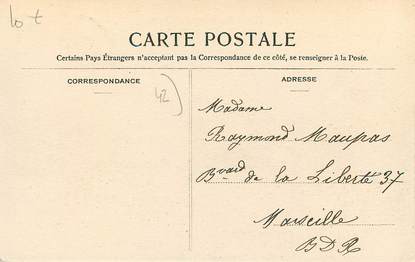 lot
CARTE POSTALE
Certains Pays Étrangers n'acceptant pas la Correspondance de ce côté, se renseigner à la Poste.
CORRESPONDANCE
42
ADRESSE
Madame
Raymond Maupas
Bvard de la Liberté 37
Marseille
BDR